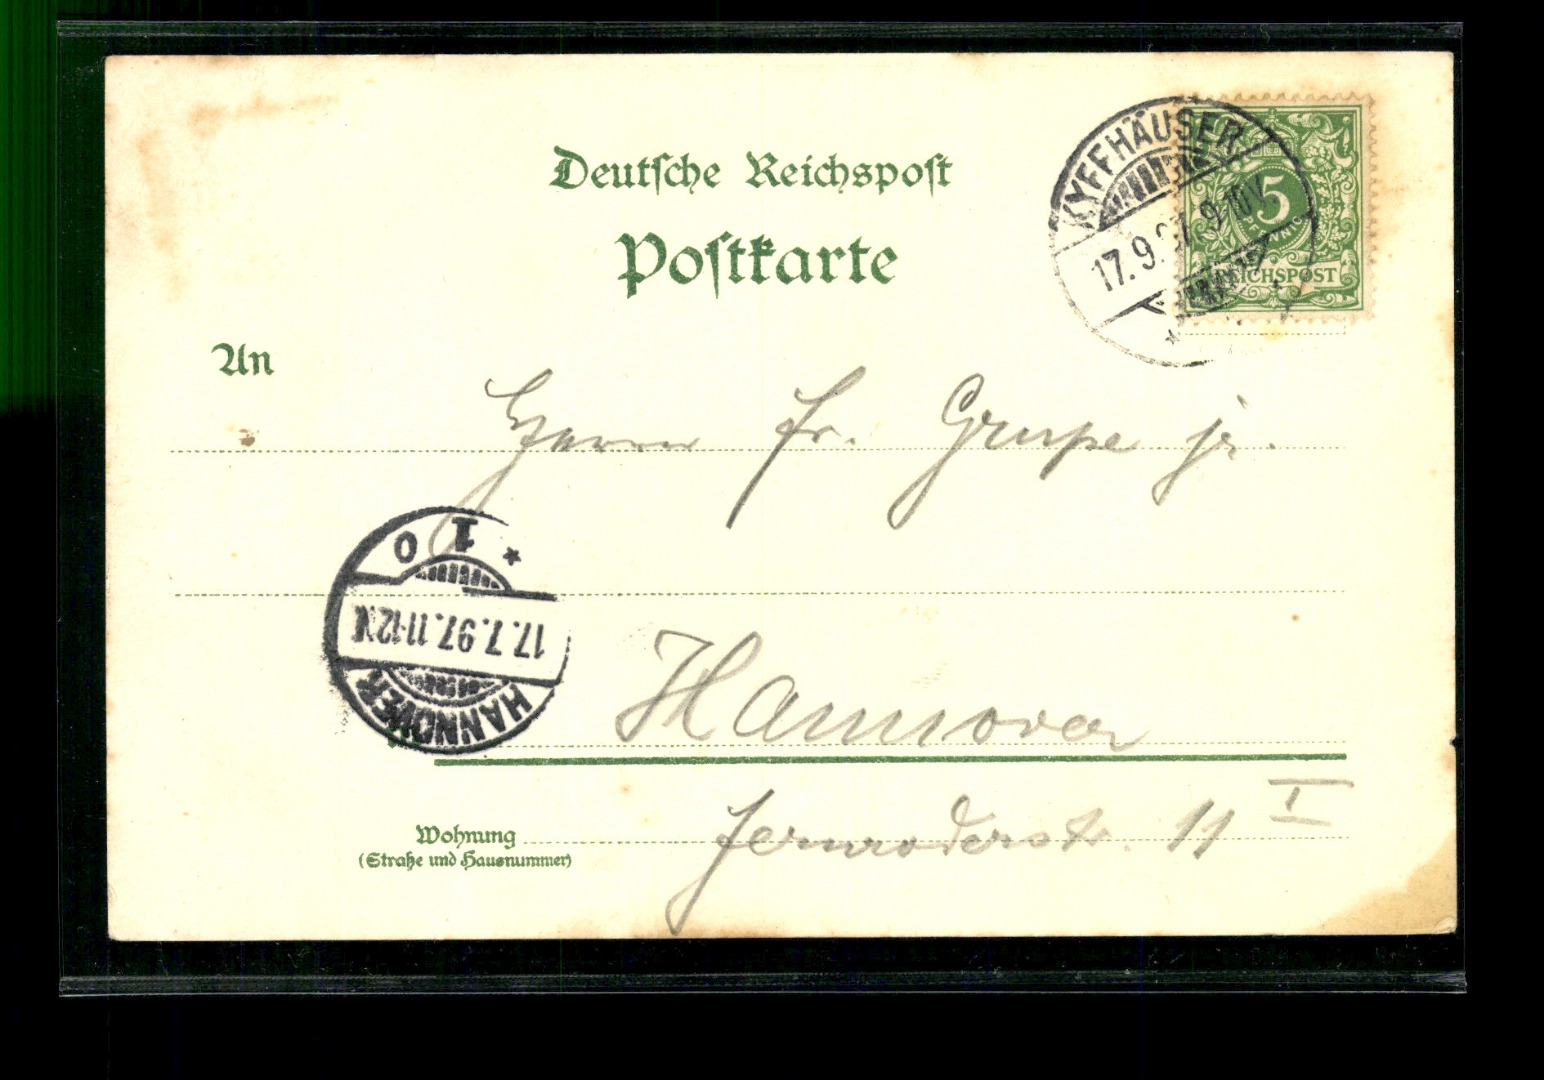 Deutsche Reichspost
Postkarte
KYFFHÄUSER
17.9.97 9-10V
5
PFENNIG
REICHSPOST
An
Herrn Fr. Grupe jr.
* 1 0
17.7.97.11-12N
HANNOVER
Hannover
Wohnung
(Straße und Hausnummer)
11 I